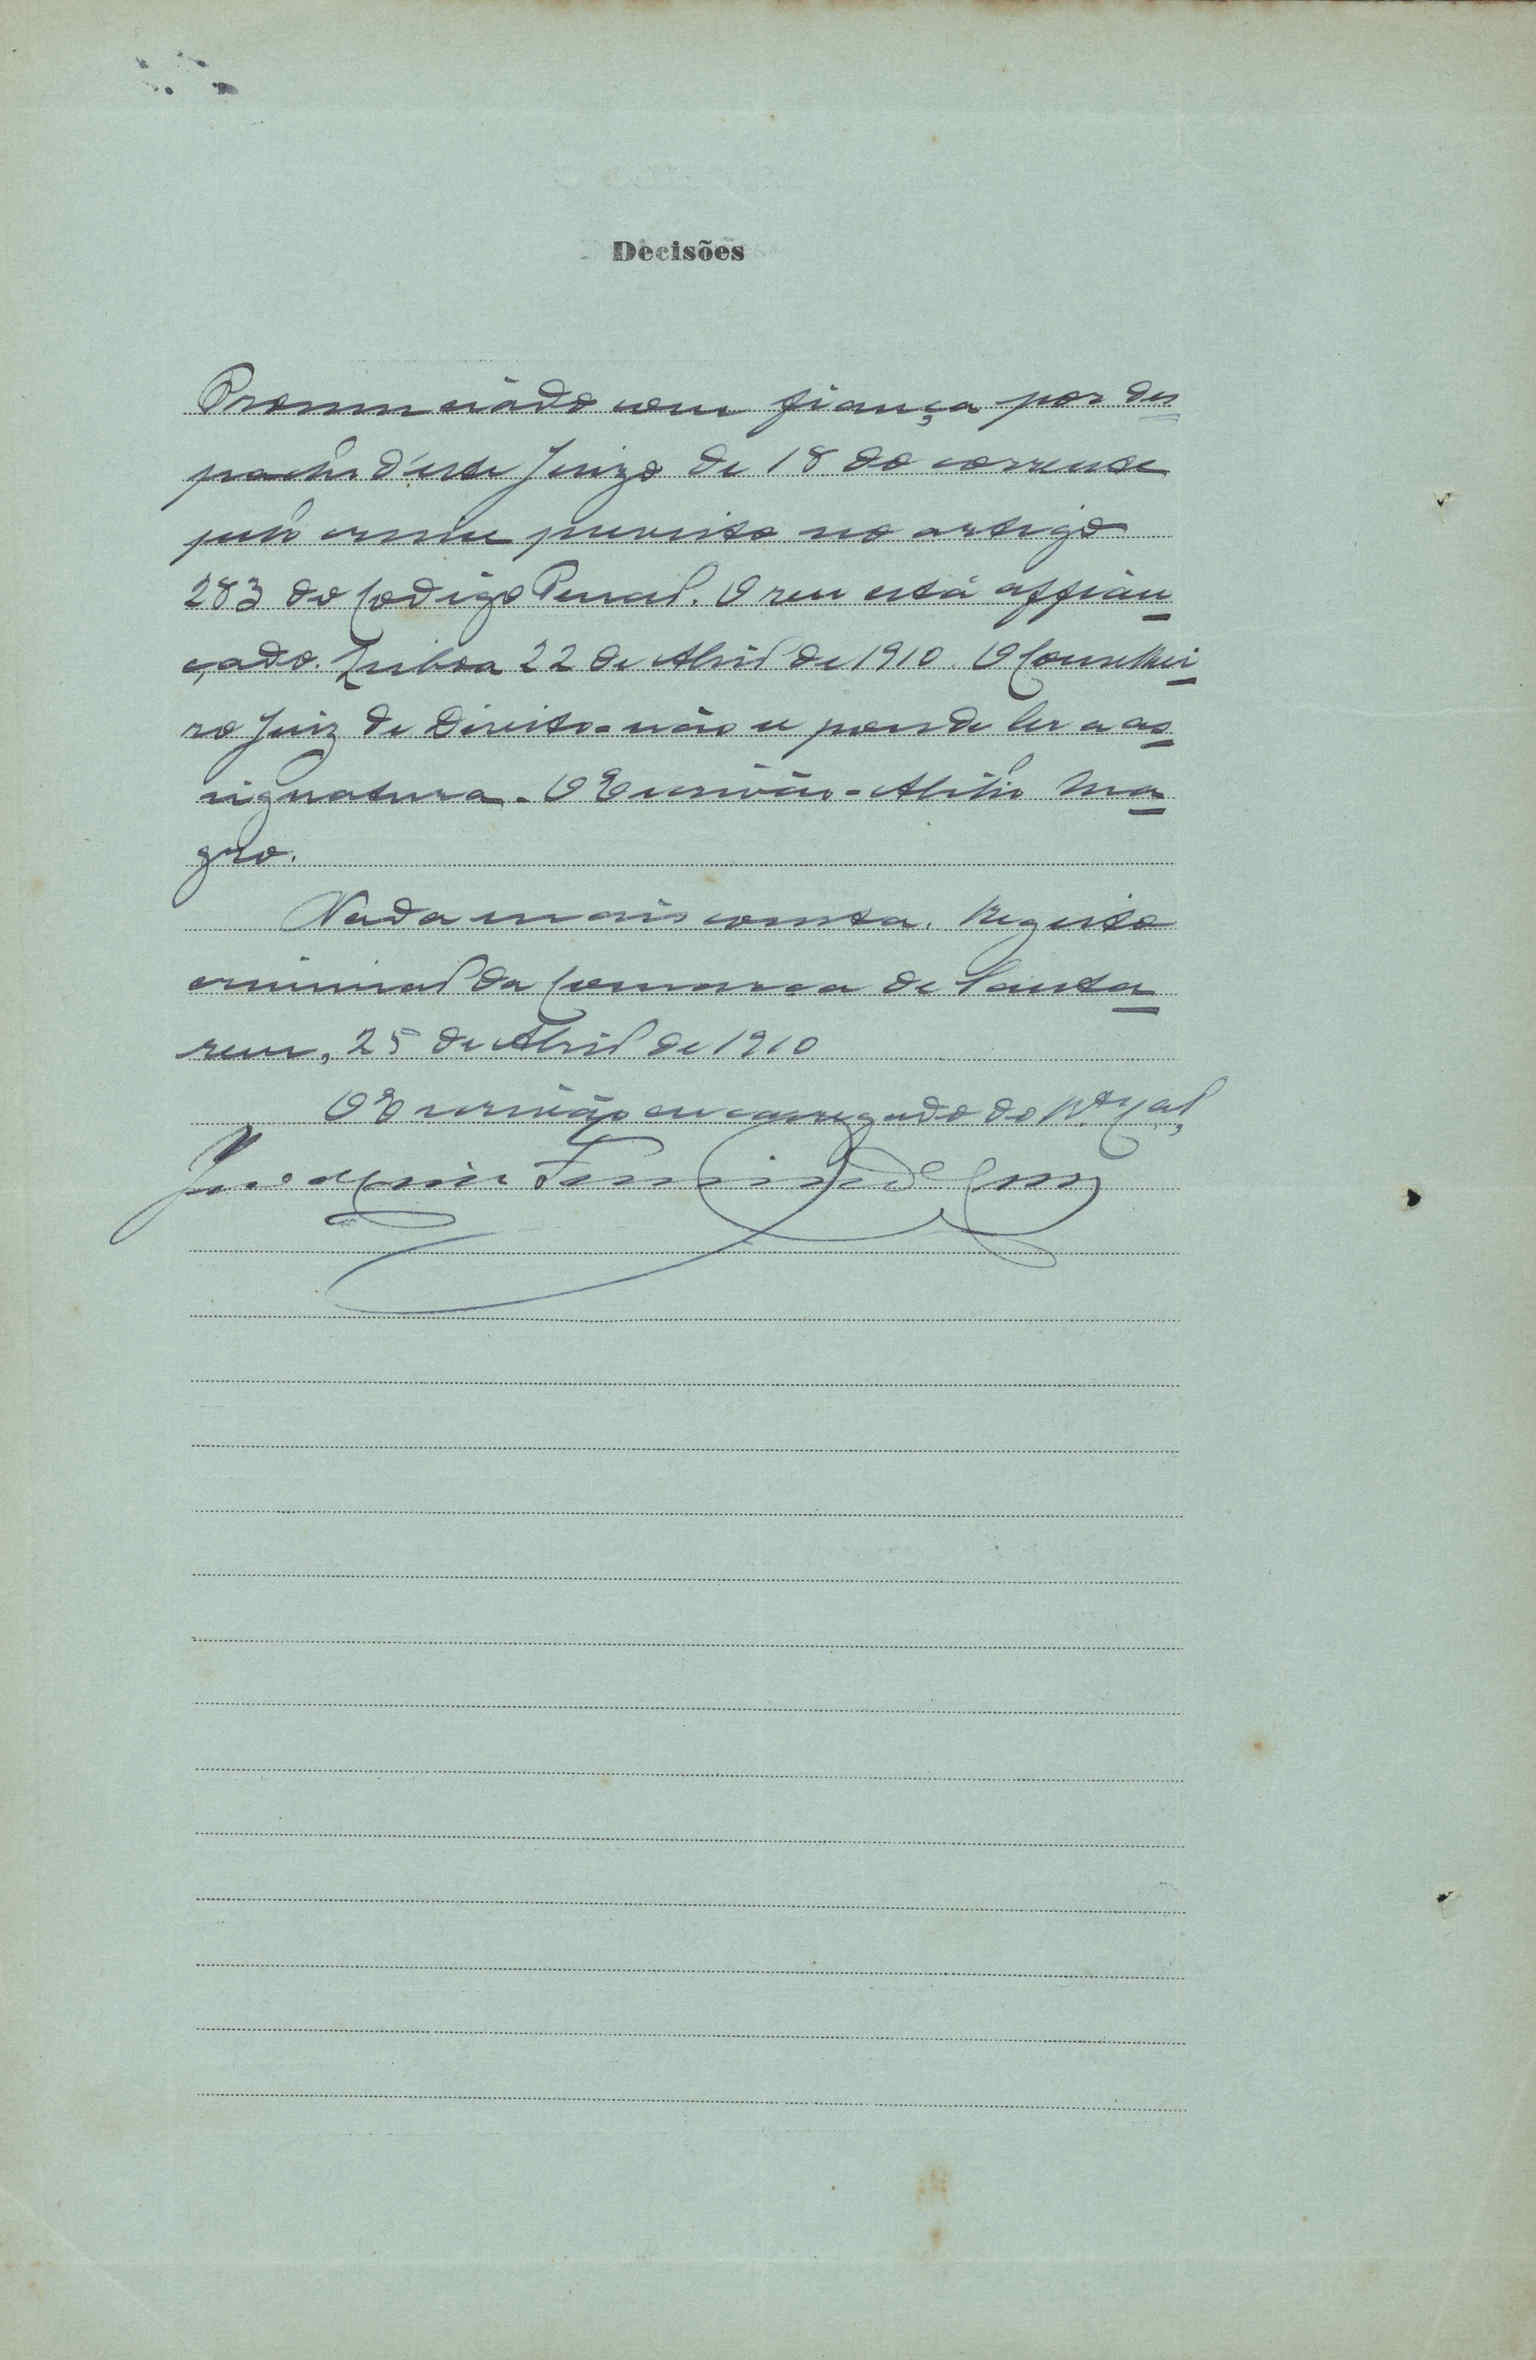 Decisões
Pronunciado com fiança por des
pacho d'este Juizo de 18 do corrente
pelo crime previsto no artigo
283 do Codigo Penal. O reu está affian
çado. Lisboa 22 de Abril de 1910. O Conselhei
ro Juiz de Direito = não se poude ler a as
signatura = O Escrivão = Abilio Ma
gro.
Nada mais consta. Registo
criminal da Comarca de Santa
rem, 25 de Abril de 1910
O Escrivão encarregado do
Joaquim